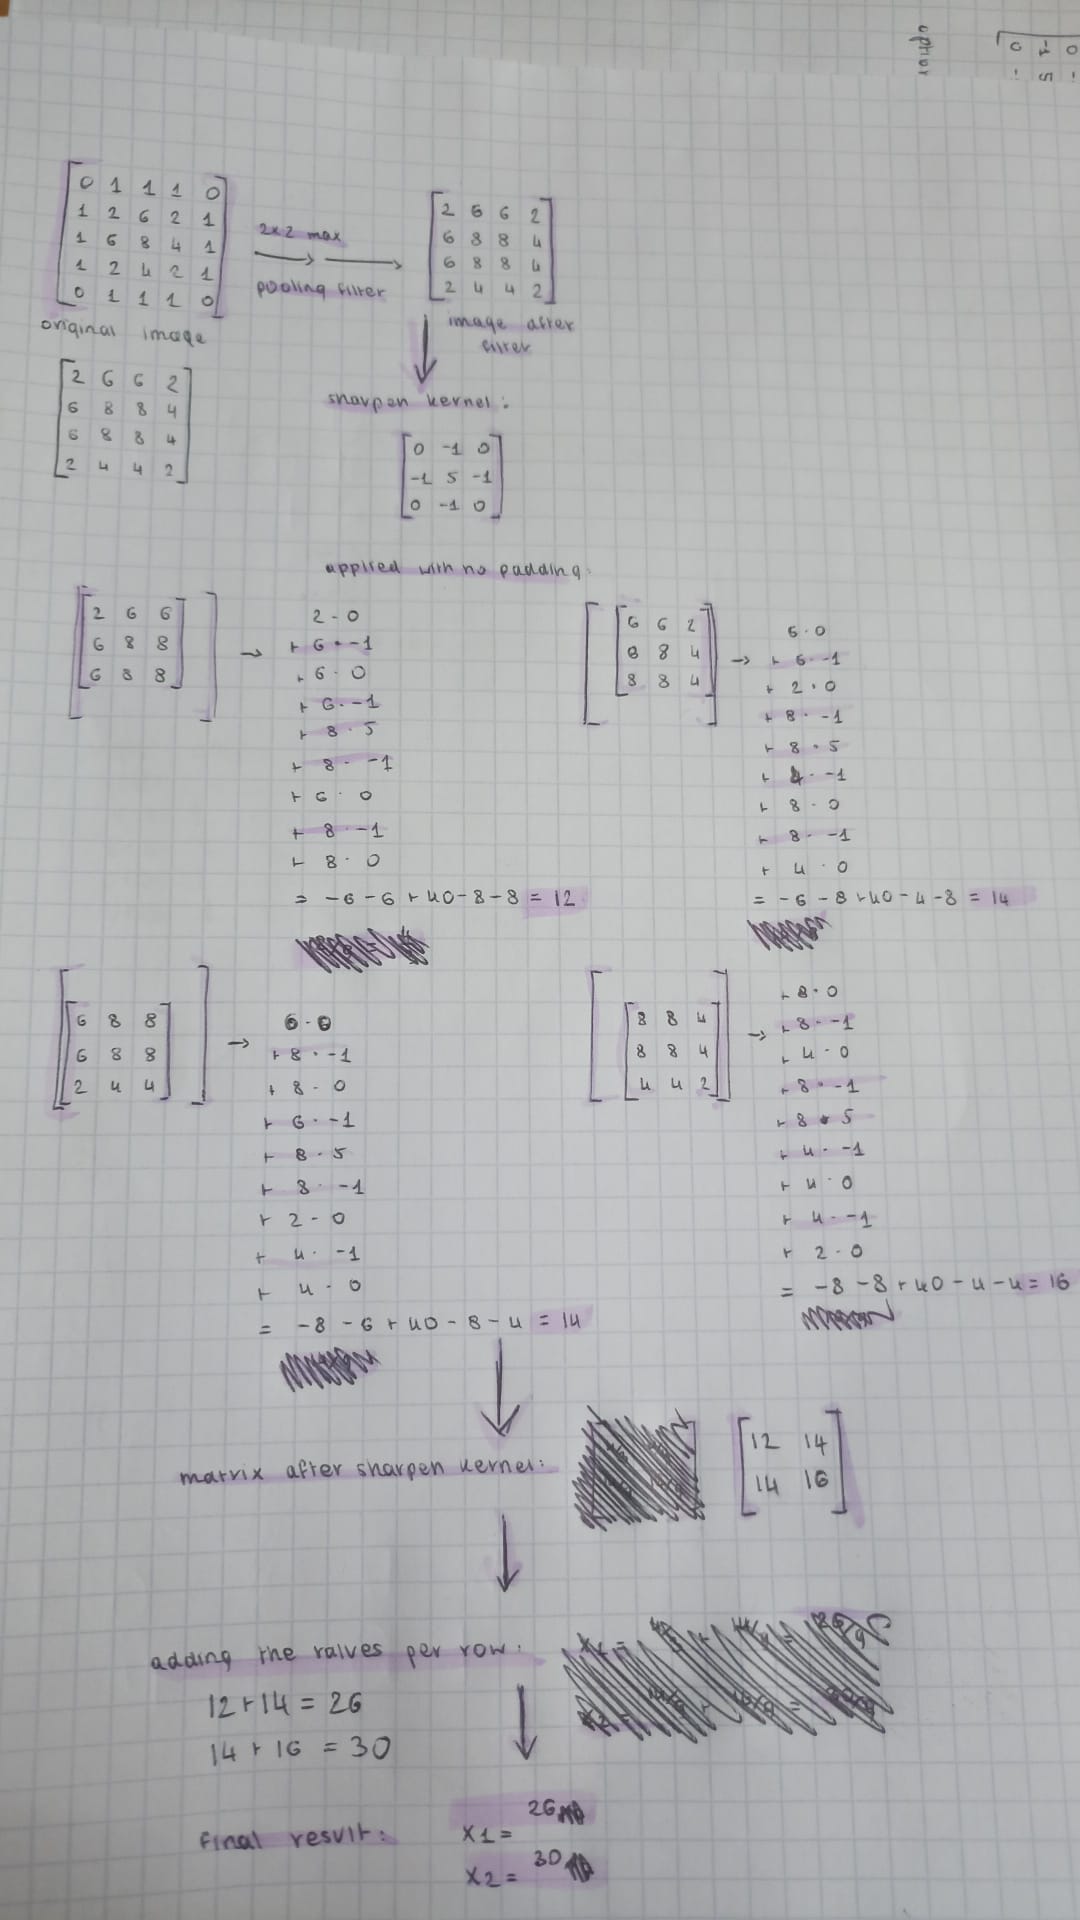 option
0 1 1 1 0
1 2 6 2 1
1 6 8 4 1
1 2 4 2 1
0 1 1 1 0
original image
2x2 max
pooling filter
2 6 6 2
6 8 8 4
6 8 8 4
2 4 4 2
image after
filter
2 6 6 2
6 8 8 4
6 8 8 4
2 4 4 2
sharpen kernel:
0 -1 0
-1 5 -1
0 -1 0
applied with no padding:
2 6 6
6 8 8
6 8 8
2 · 0
+ 6 · -1
+ 6 · 0
+ 6 · -1
+ 8 · 5
+ 8 · -1
+ 6 · 0
+ 8 · -1
+ 8 · 0
= -6 -6 + 40 - 8 - 8 = 12
6 6 2
8 8 4
8 8 4
6 · 0
+ 6 · -1
+ 2 · 0
+ 8 · -1
+ 8 · 5
+ 4 · -1
+ 8 · 0
+ 8 · -1
+ 4 · 0
= -6 - 8 + 40 - 4 - 8 = 14
6 8 8
6 8 8
2 4 4
6 · 0
+ 8 · -1
+ 8 · 0
+ 6 · -1
+ 8 · 5
+ 8 · -1
+ 2 · 0
+ 4 · -1
+ 4 · 0
= -8 - 6 + 40 - 8 - 4 = 14
8 8 4
8 8 4
4 4 2
+ 8 · 0
+ 8 · -1
+ 4 · 0
+ 8 · -1
+ 8 · 5
+ 4 · -1
+ 4 · 0
+ 4 · -1
+ 2 · 0
= -8 - 8 + 40 - 4 - 4 = 16
matrix after sharpen kernel:
12 14
14 16
adding the values per row:
12 + 14 = 26
14 + 16 = 30
final result:
x1 = 26
x2 = 30